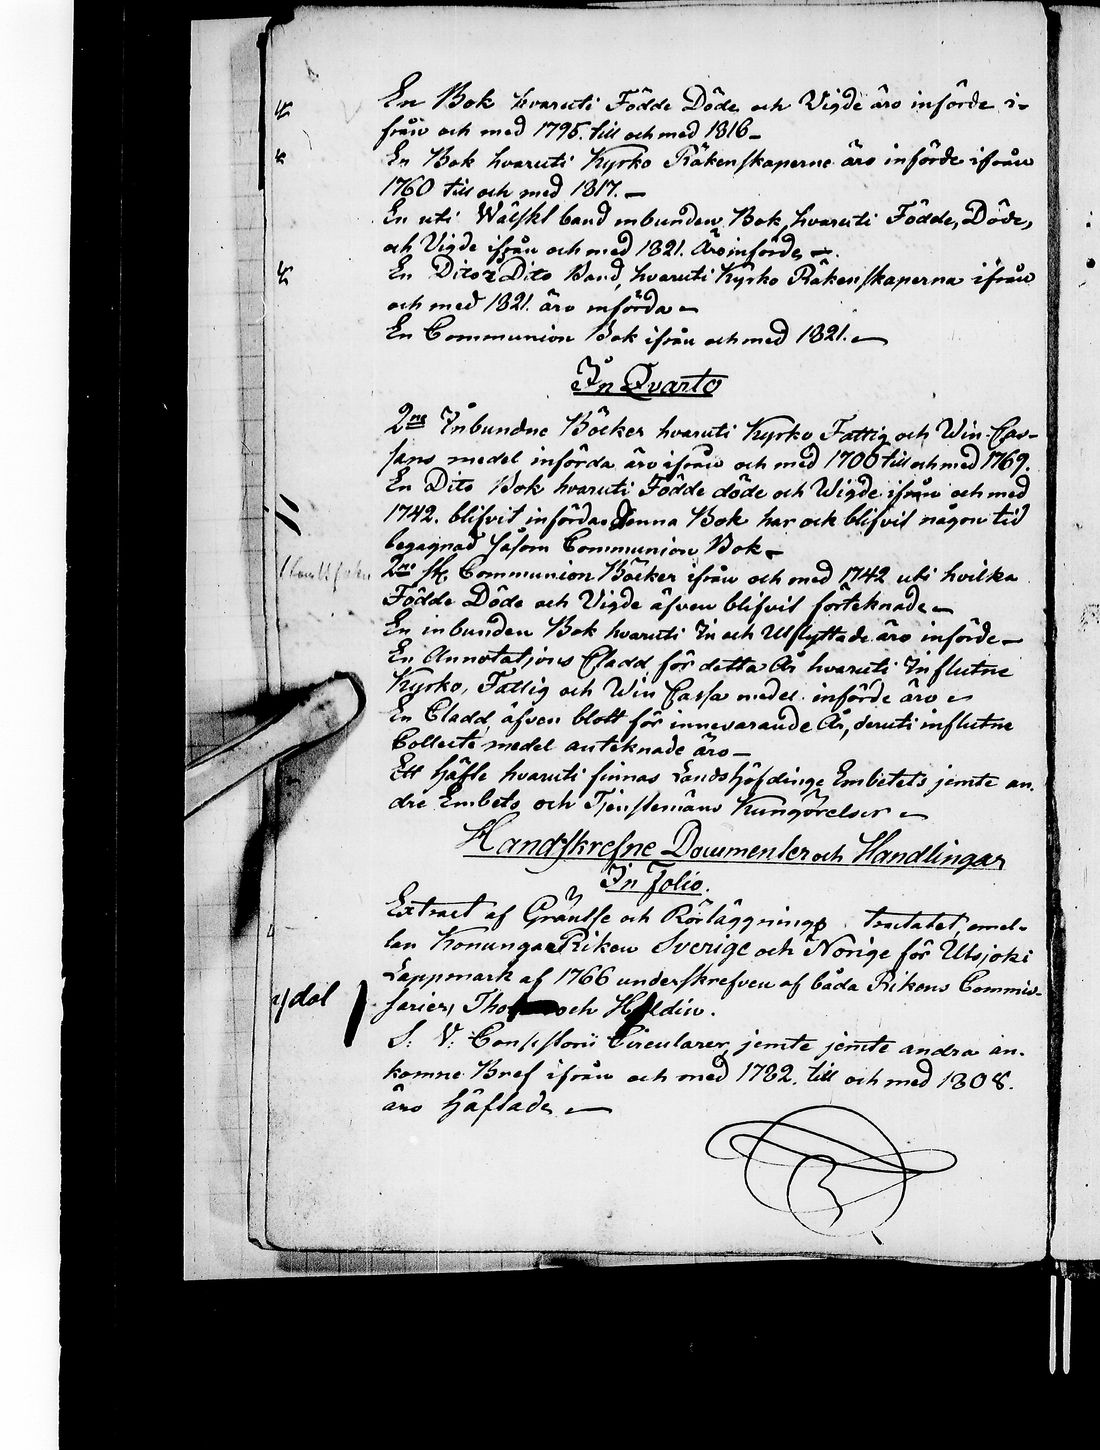 En Bok hvaruti Födde Döde och Vigde äro införde i-
från och med 1795. till och med 1816 -
En Bok hvaruti Kyrko Räkenskaperne äro införde ifrån
1760 till och med 1817. -
En uti Wälskt band inbunden Bok, hvaruti Födde, Döde,
och Vigde ifrån och med 1821. äro införde -
En Dito Dito Band, hvaruti Kyrko Räkenskaperna ifrån
och med 1821. äro införda -
En Communion Bok ifrån och med 1821. -
In Qvarto
2ne Inbundne Böcker hvaruti Kyrko Fattig och Win-Cas-
sans medel införda äro ifrån och med 1700 till och med 1769.
En Dito Bok hvaruti Födde döde och Wigde ifrån och med
1742. blifvit införda Denna Bok har ock blifvit någon tid
begagnad såsom Communion Bok -
2ne st. Communion Böcker ifrån och med 1742 uti hvilka
Födde Döde och Vigde äfven blifvit förteknade -
En inbunden Bok hvaruti In och Utflyttade äro införde -
En Annotations Cladd för detta År hvaruti Influtne
Kyrko, Fattig och Win Cassa medel införde äro -
En Cladd äfven blott för innevarande År, deruti influtne
Collecte medel anteknade äro -
Ett häfte hvaruti finnas Landshöfdinge Embetets jemte an-
dre Embets och Tjenstemäns Kungörelser -
Handskrefne Documenter och Handlingar
In Folio.
Extract af Gräntse och Rörläggnings tractatet, emel-
lan Konunga Riken Sverige och Norige för Utsjoki
Lappmark af 1766 underskrefven af båda Rikens Commis-
y/dol
sarier, och
S: V: Consistorii Circulairer jemte jemte andra an-
komne Bref ifrån och med 1782. till och med 1808.
äro häftade -